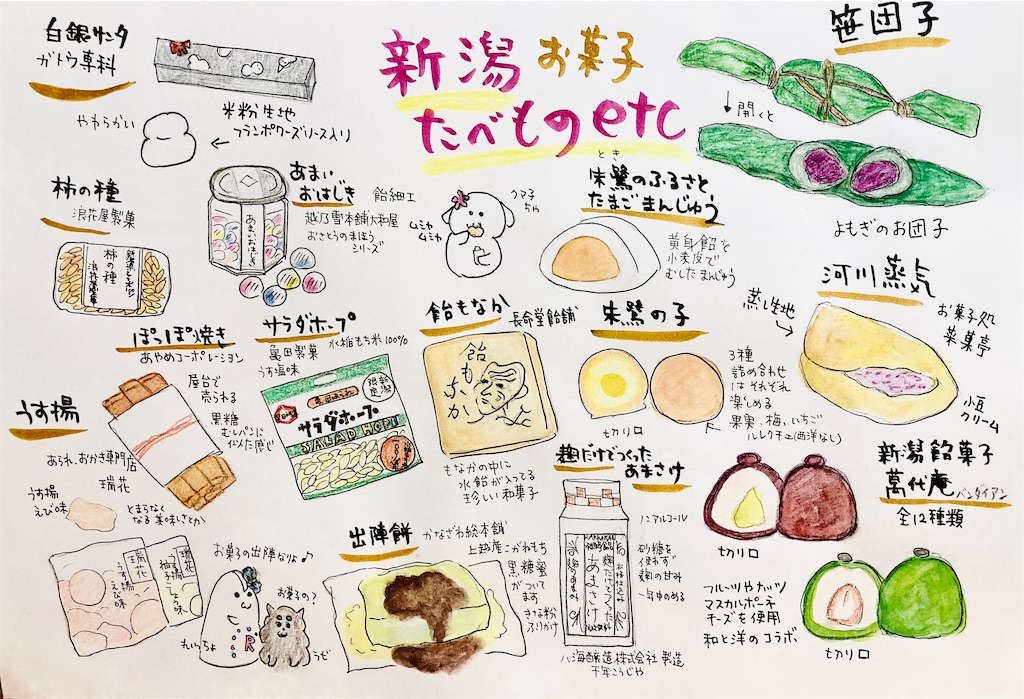 新潟お菓子
たべものetc
白銀サンタ
ガトウ専科
やわらかい
米粉生地
フランボワーズソース入り
笹団子
開くと
よもぎのお団子
柿の種
浪花屋製菓
柿の種
あまい
おはじき
飴細工
越乃雪本舗大和屋
おさとうのまほう
シリーズ
あまいおはじき
ムシャ
ムシャ
朱鷺のふるさと
とき
たまごまんじゅう
黄身餡を
小麦皮で
むしたまんじゅう
河川蒸気
蒸し生地
お菓子処
菜菓亭
小豆
クリーム
ぽっぽ焼き
あやめコーポレーション
屋台で
売られる
黒糖
むしパンに
似た感じ
サラダホープ
亀田製菓
水稲もち米100%
うす塩味
新潟
限定
サラダホープ
SALAD HOPE
飴もなか
長命堂飴舗
飴
もなか
もなかの中に
水飴が入ってる
珍しい和菓子
朱鷺の子
切り口
3種
詰め合わせ
はそれぞれ
楽しめる
果実・梅、いちご
ルレクチェ(西洋なし)
うす揚
あられ、おかき専門店
瑞花
うす揚
えび味
とまらなく
なる美味しさとか
瑞花
うす揚
えび味
瑞花
お菓子の出陣なりよ♪
お菓子の?
れいっちょ
うぜ
R
出陣餅
かなざわ総本舗
上越産こがねもち
黒糖蜜
がついて
ます
きな粉
ふりかけ
麹だけでつくった
あまさけ
ノンアルコール
砂糖を
使わず
麹の甘み
一年中のめる
麹だけでつくった
あまさけ
八海醸造株式会社製造
千年こうじや
新潟銘菓子
萬代庵
バンダイアン
全12種類
切り口
フルーツやナッツ
マスカルポーネ
チーズを使用
和と洋のコラボ
切り口